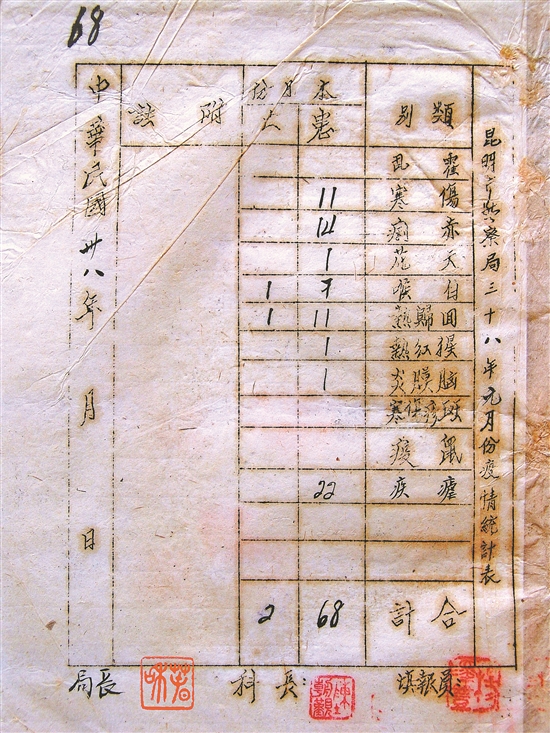 68
昆明市警察局三十八年元月份疫情統計表
類別 本月份 附註
患 亡
霍乱
傷寒 11
赤痢 14
天花 1
白喉 7 1
囬歸熱 11 1
猩紅熱 1
脑膜炎 1
斑疹傷寒
鼠疫
瘧疾 22
合計 68 2
中華民國卅八年 月 日
填報員:
科長:
局長